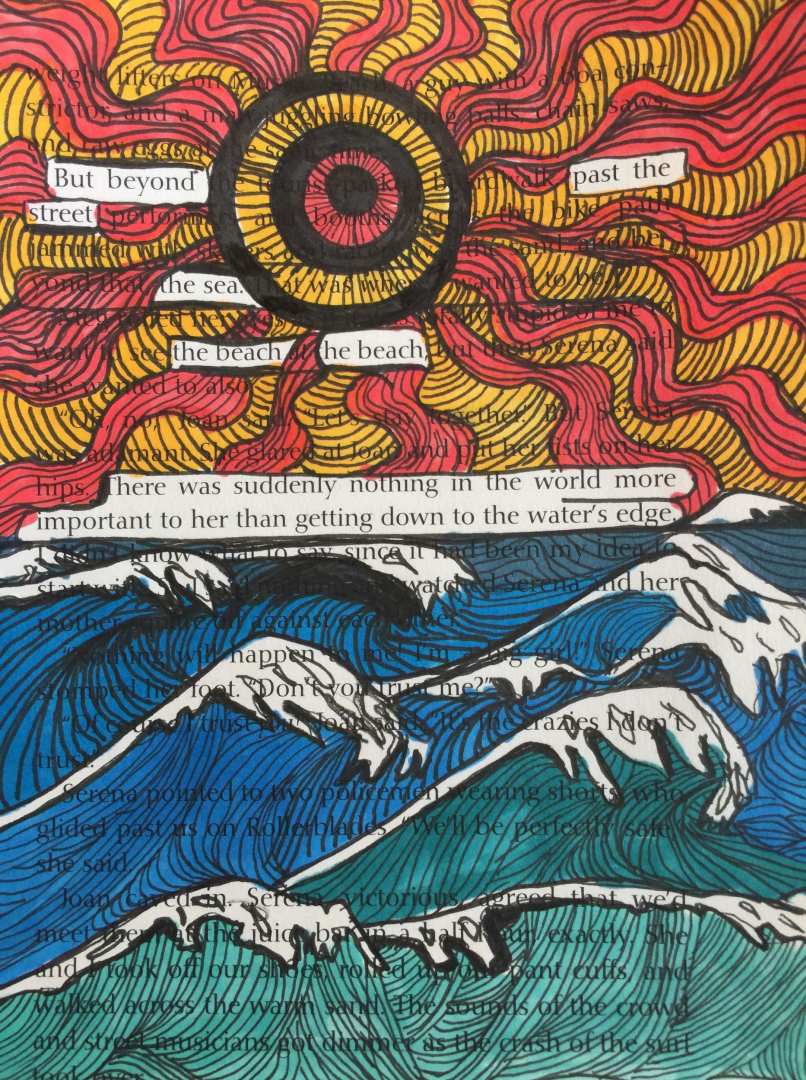 weight lifters on a guy with a boa con-
strictor, and a man juggling bowling balls, chain saws,
and raw eggs at the same time.
But beyond the tourist-packed boardwalk, past the
street performers and across the bike path
jammed with skaters and the sand and be-
yond that the sea. That was where I wanted to be.
Meg rolled her stupid of me to
want to see the beach at the beach, but then Serena said
she wanted to also.
“Oh, no,” Joan said. “Let’s stay together.” But Serena
was adamant. She glared at Joan and put her fists on her
hips. There was suddenly nothing in the world more
important to her than getting down to the water’s edge.
I didn’t know what to say, since it had been my idea to
start with. So I said nothing and watched Serena and her
mother square off against each other.
“Nothing will happen to me! I’m a big girl!” Serena
stomped her foot. “Don’t you trust me?”
“Of course I trust you,” Joan said. “It’s the crazies I don’t
trust.”
Serena pointed to two policemen wearing shorts, who
glided past us on Rollerblades. “We’ll be perfectly safe,”
she said.
Joan caved in. Serena, victorious, agreed that we’d
meet them at the juice bar in a half hour, exactly. She
and I took off our shoes, rolled up our pant cuffs, and
walked across the warm sand. The sounds of the crowd
and street musicians got dimmer as the crash of the surf
took over.